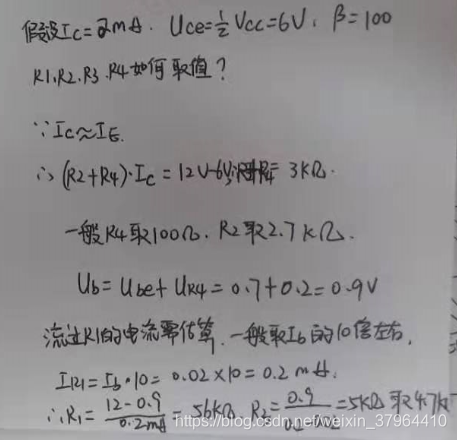 假设Ic=2mA. Uce=½Vcc=6V, β=100
R1.R2.R3.R4如何取值?
∵Ic≈IE.
∴(R2+R4)·Ic=12V-6V, = 3KΩ.
一般R4取100Ω. R2取2.7KΩ.
Ub=Ube+UR4=0.7+0.2=0.9V
流过R1的电流需估算, 一般取Ib的10倍左右,
IR1=Ib·10=0.02×10=0.2mA.
∴R1=(12-0.9)/0.2mA=56KΩ, R2=0.9/ =5KΩ取4.7K
https://blog.csdn.net/weixin_37964410